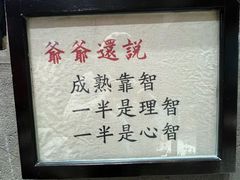 爺爺還說
成熟靠智
一半是理智
一半是心智